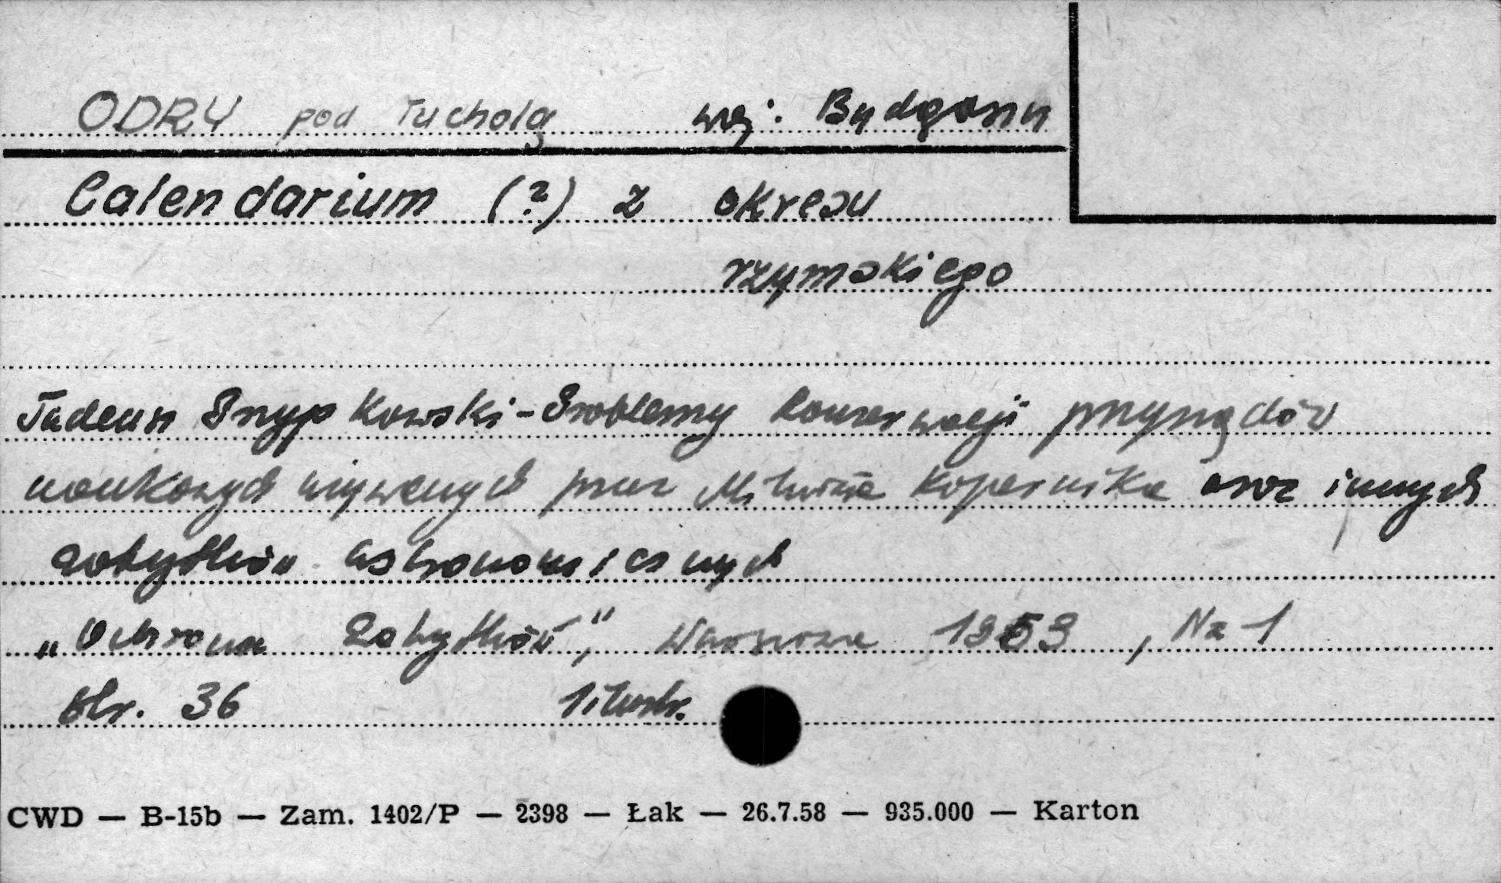 ODRY pod Tucholą woj. Bydgoszcz
Calendarium (?) z okresu
rzymskiego
Tadeusz Przypkowski - Problemy konserwacji przyrządów
naukowych używanych przez Mikołaja Kopernika oraz innych
zabytków astronomicznych
„Ochrona Zabytków”, Warszawa 1953, Nr 1
str. 36 1 ilustr.
CWD — B-15b — Zam. 1402/P — 2398 — Łak — 26.7.58 — 935.000 — Karton